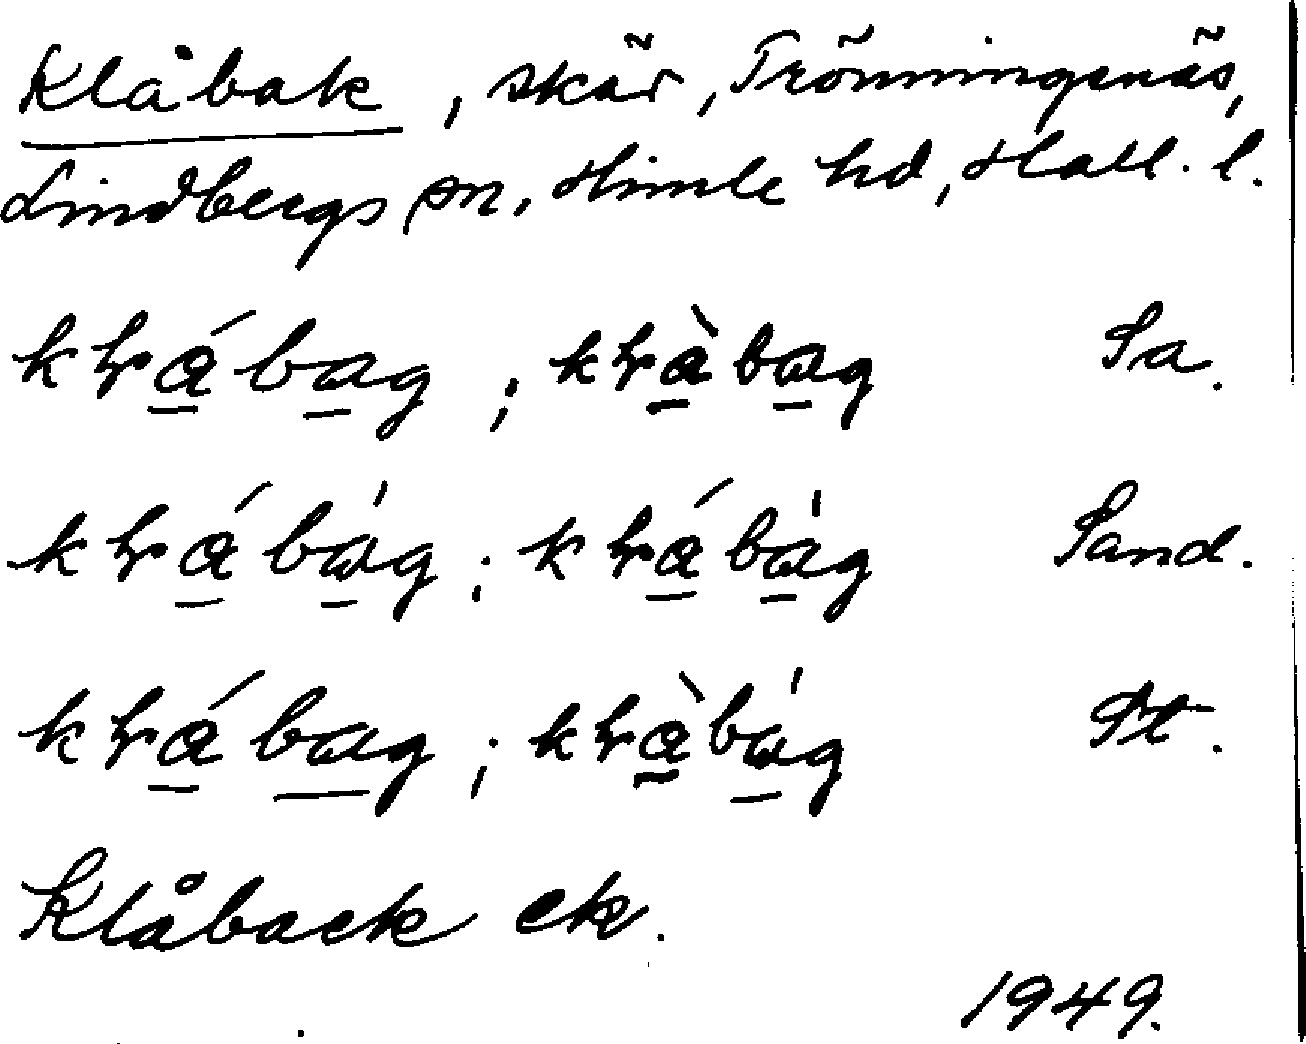 Klåbak, skär, Trönningenäs,
Lindbergs sn, Himle hd, Hall. l.
khrábag; khràbag Sa.
khrábág; khrábág Sand.
khrábag; khràbág St.
Klåback ek.
1949.